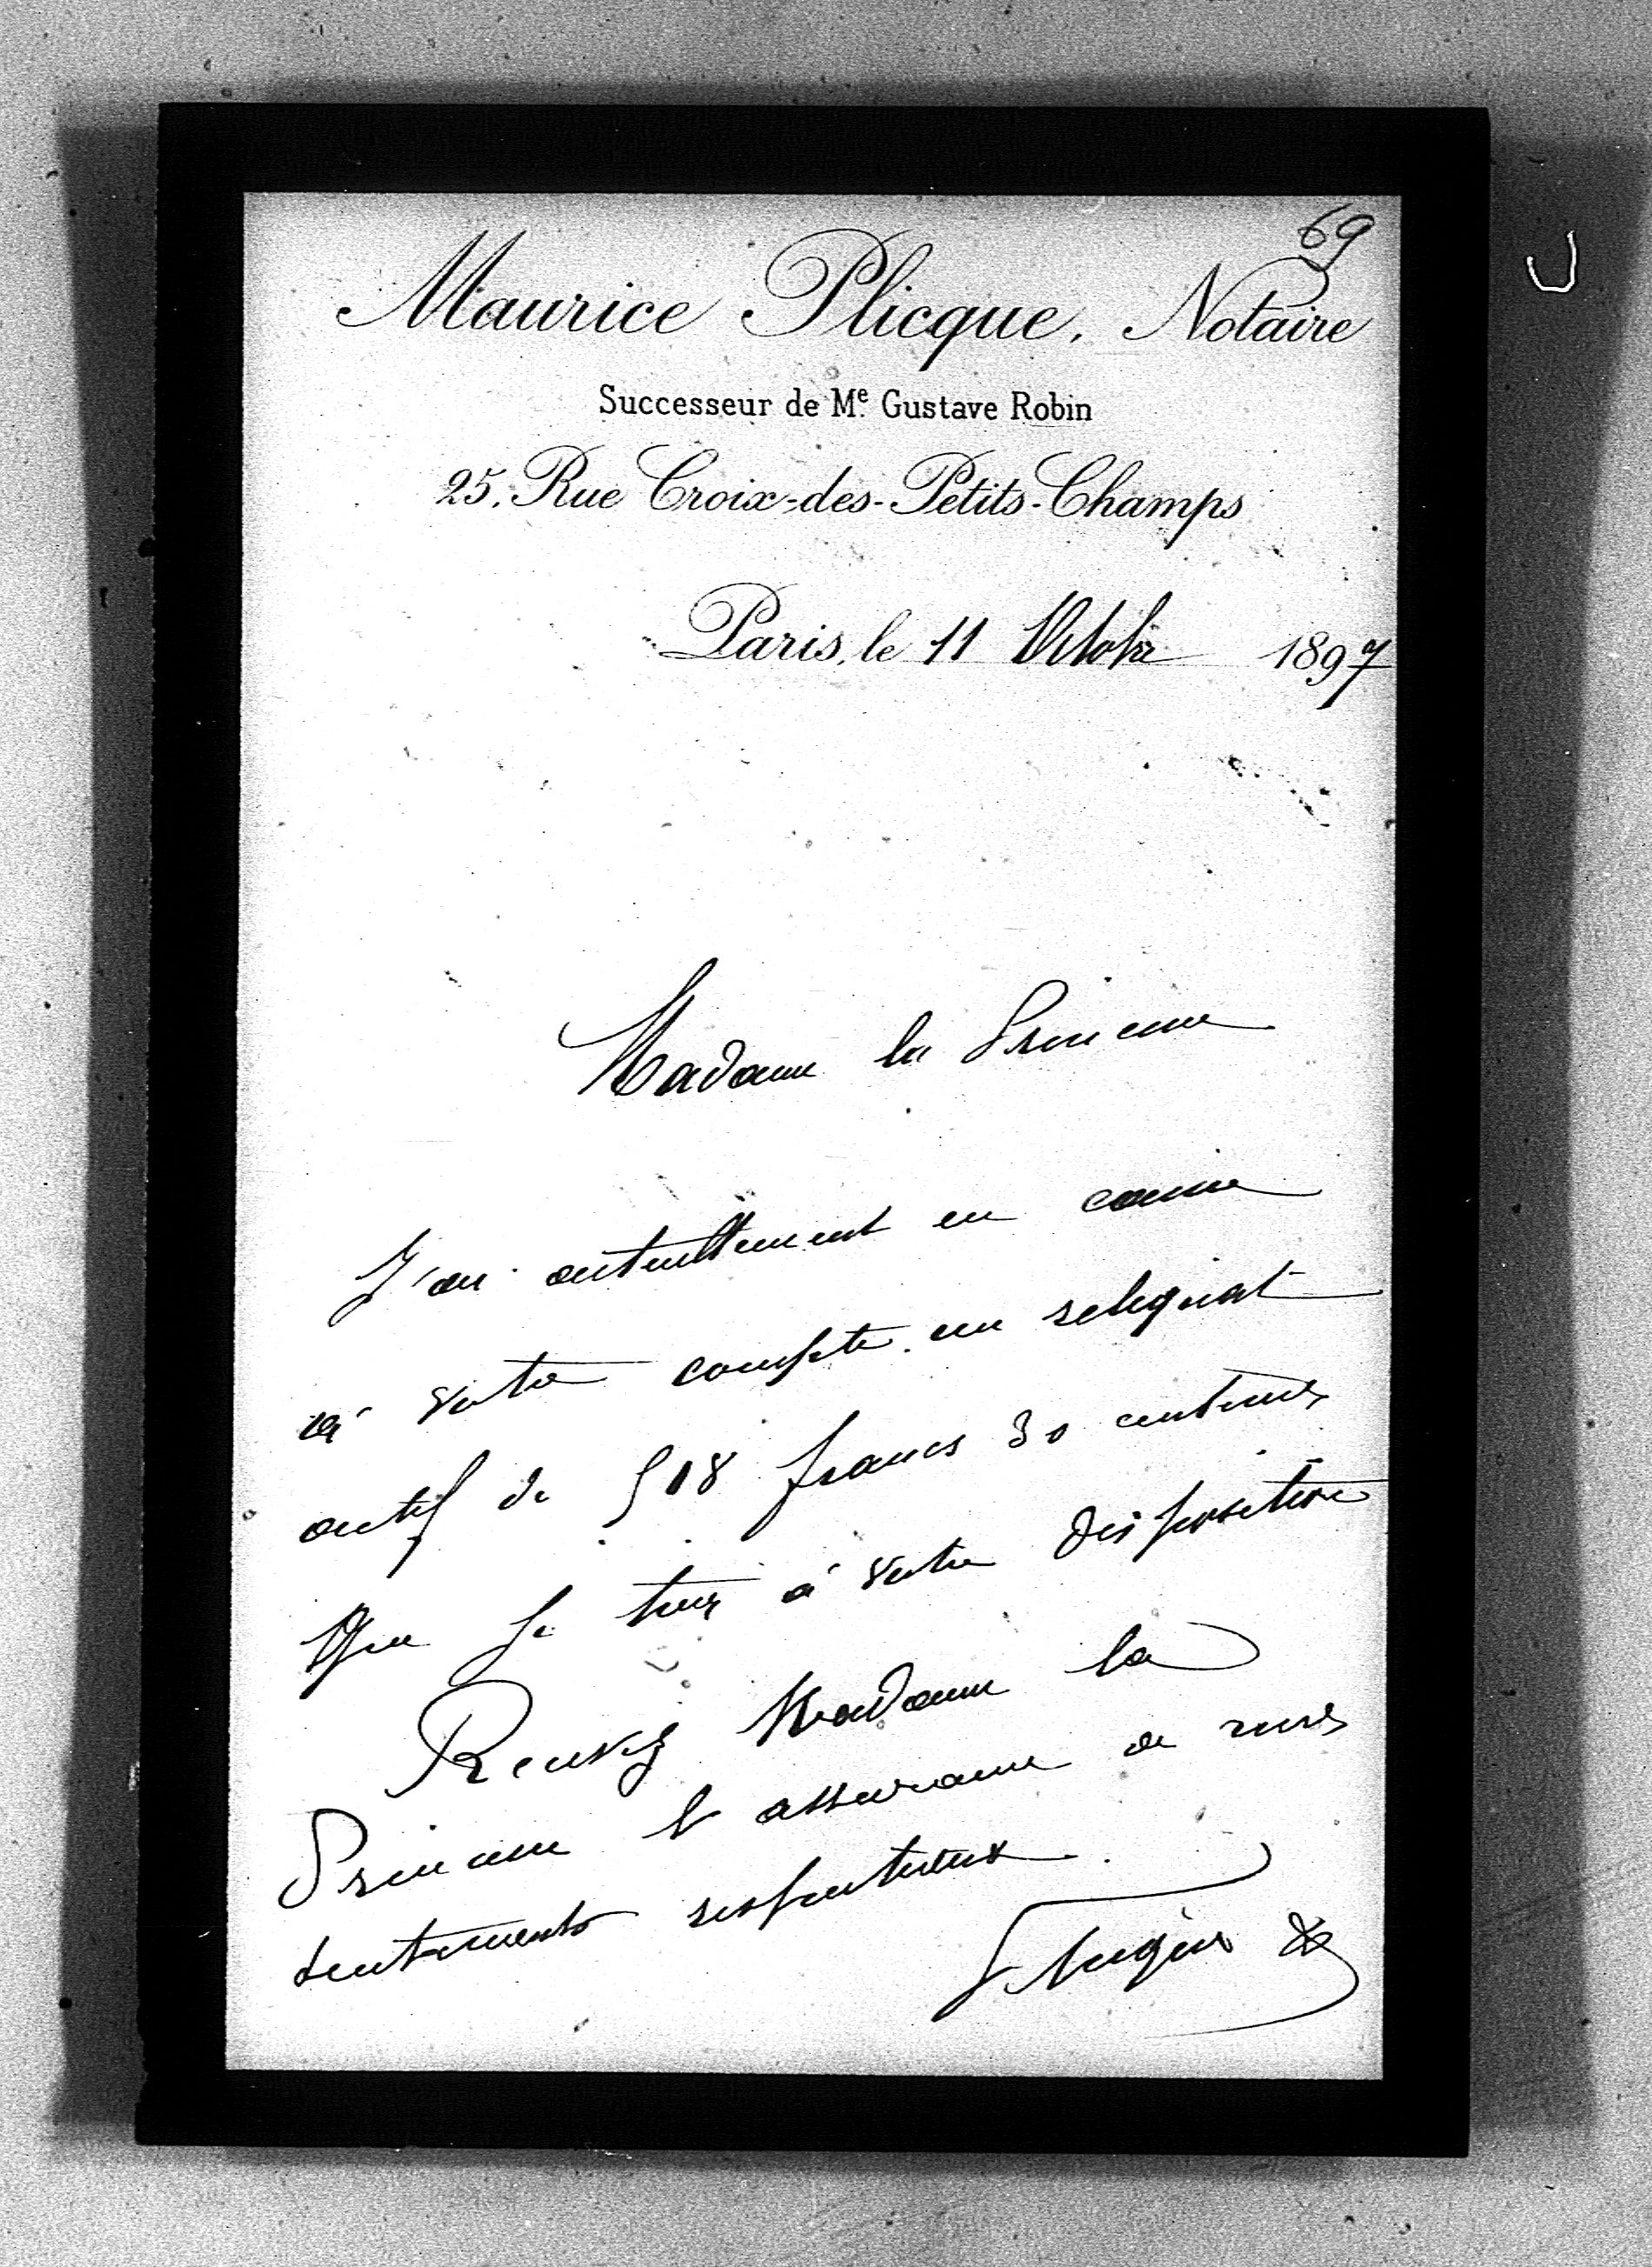 69
Maurice Plicque, Notaire
Successeur de Mᵉ Gustave Robin
25, Rue Croix-des-Petits-Champs
Paris, le 11 Octobre 1897
Madame la Princesse
J'ai actuellement en caisse
à votre compte un reliquat
actif de 518 francs 30 centimes
Que je tiens à votre disposition
Recevez Madame la
Princesse l'assurance de mes
sentiments respectueux